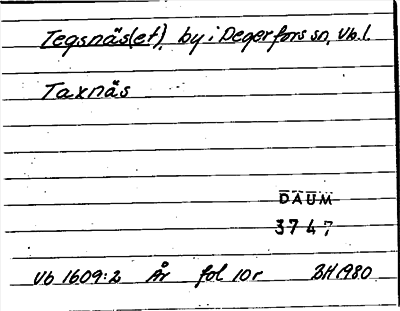 Tegsnäs(et), by i Degerfors sn, Vb.l.
Taxnäs
DAUM
3747
Vb 1609:2 År fol 10r BH 1980